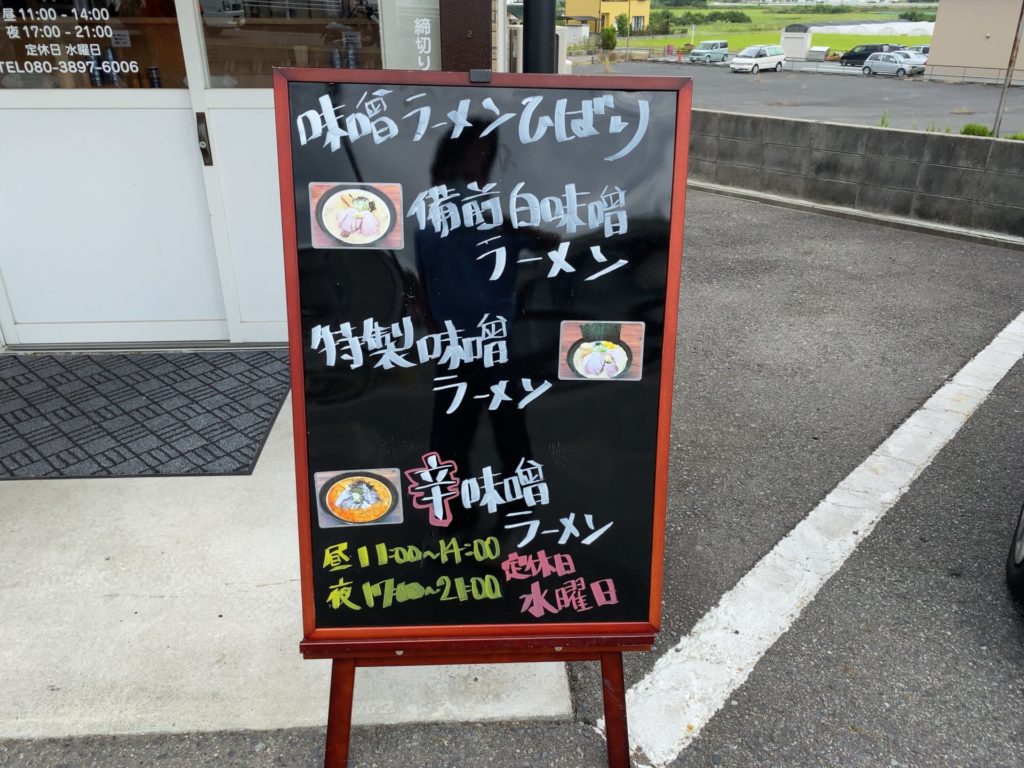 昼 11:00 - 14:00
夜 17:00 - 21:00
定休日 水曜日
TEL080-3897-6006
締切り
味噌ラーメンひばり
備前白味噌
ラーメン
特製味噌
ラーメン
辛味噌
ラーメン
昼 11:00~14:00
夜 17:00~21:00
定休日
水曜日